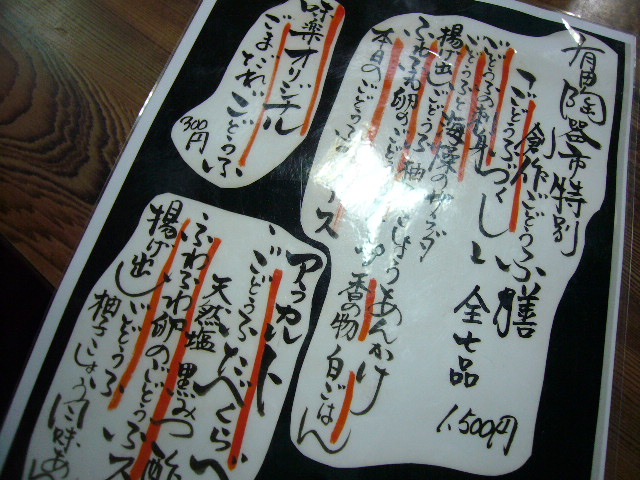 有田陶器市特別
創作ごどうふ膳
ごどうふづくし 全七品
1,500円
ごどうふのお刺身
ごどうふと海藻のサラダ
揚げ出しごどうふ 柚こしょうあんかけ
ふわふわ卵のごどうふ
香の物 白ごはん
本日のごどうふ
味楽オリジナル
ごまだれごどうふ
300円
アラカルト
ごどうふたべくらべ
天然塩 黒みつ
ふわふわ卵のごどうふ
揚げ出しごどうふ
柚子こしょう風味あん